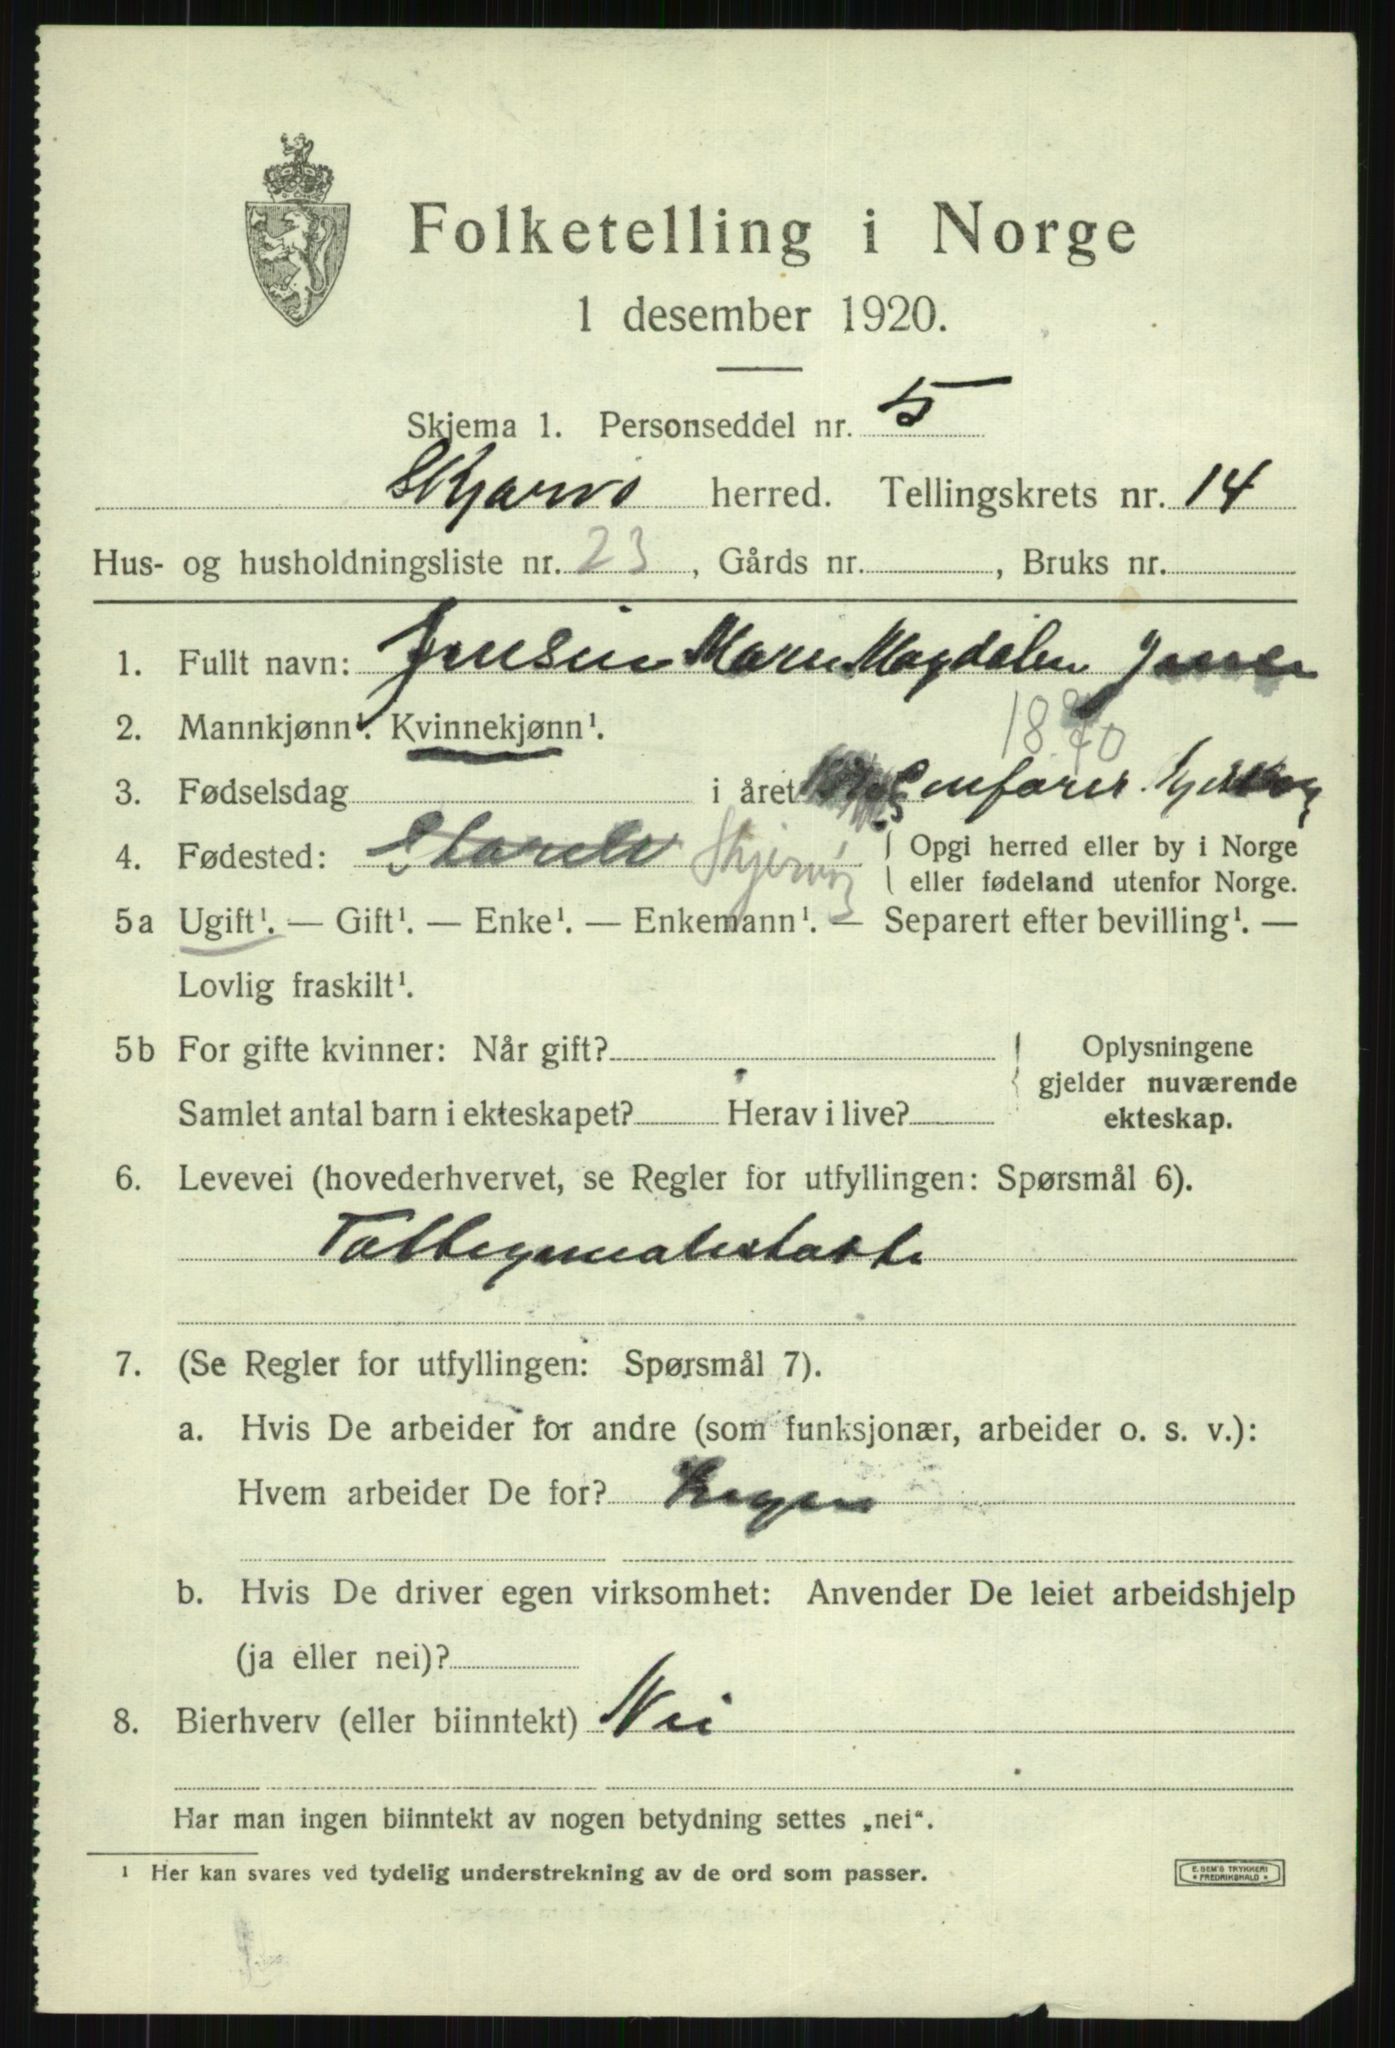 Folketelling i Norge
1 desember 1920.
Skjema 1. Personseddel nr. 5
Skjervö herred. Tellingskrets nr. 14
Hus- og husholdningsliste nr. 23, Gårds nr. , Bruks nr.
1. Fullt navn: Jensine Marie Magdalen Jensen
2. Mannkjønn¹. Kvinnekjønn¹.
1870
3. Fødselsdag i året
4. Fødested: Skjervöy { Opgi herred eller by i Norge
eller fødeland utenfor Norge.
5a Ugift¹. — Gift¹. — Enke¹. — Enkemann¹. — Separert efter bevilling¹. —
Lovlig fraskilt¹.
5b For gifte kvinner: Når gift? Oplysningene
gjelder nuværende
Samlet antal barn i ekteskapet? Herav i live? ekteskap.
6. Levevei (hovederhvervet, se Regler for utfyllingen: Spørsmål 6).
7. (Se Regler for utfyllingen: Spørsmål 7).
a. Hvis De arbeider for andre (som funksjonær, arbeider o. s. v.):
Hvem arbeider De for?
b. Hvis De driver egen virksomhet: Anvender De leiet arbeidshjelp
(ja eller nei)?
8. Bierhverv (eller biinntekt) Nei
Har man ingen biinntekt av nogen betydning settes „nei“.
¹ Her kan svares ved tydelig understrekning av de ord som passer.
E. SEM'S TRYKKERI
* FREDRIKSHALD *